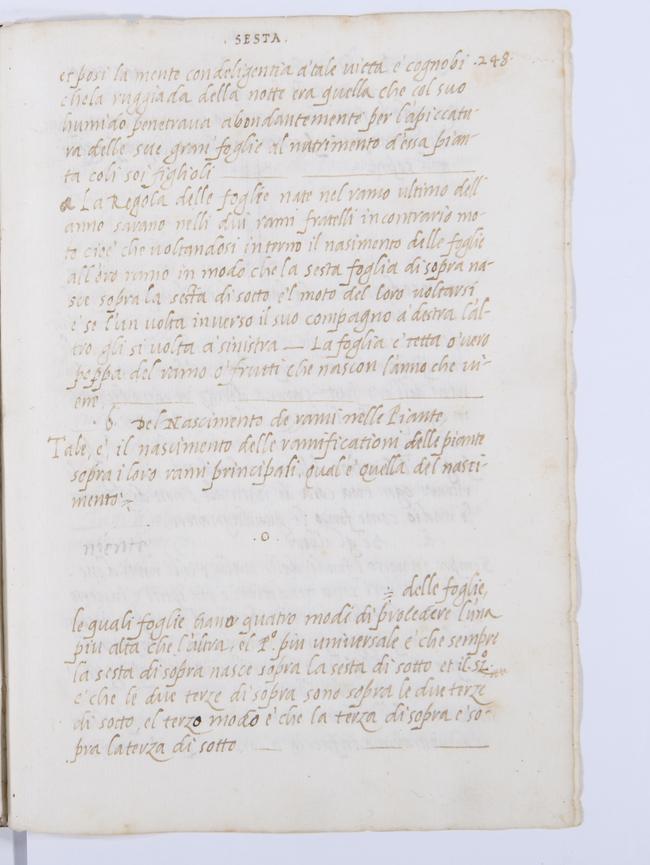 . SESTA .
.248.
et posi la mente con deligentia a tale vieta e cognobi
che la ruggiada della notte era quella che col suo
humido penetrava abondantemente per l'apiccatu-
ra delle sue gran foglie al nutrimento d'essa pian-
ta coli soi figlioli
La Regola delle foglie nate nel ramo ultimo dell'
anno sarano nelli dui rami fratelli in contrario mo-
to cioe' che voltandosi intorno il nasimento delle foglie
all'oro ramo in modo che la sesta foglia di sopra na-
sce sopra la sesta di sotto e'l moto del loro voltarsi
e' se l'un volta inverso il suo compagno a' destra l'al-
tro gli si volta a' sinistra — La foglia e' tetta o' vero
poppa del ramo o' frutti che nascon l'anno che vi-
ene
. 6 . Del Nascimento de rami nelle Piante,
Tale, e', il nascimento delle ramificationi delle piante
sopra i loro rami principali, qual e' quella del nasci-
mento
. o .
niente
delle foglie,
le quali foglie hano quatro modi di procedere l'una
piu alta che l'altra, el P.º piu universale e' che sempre
la sesta di sopra nasce sopra la sesta di sotto et il sº.
e' che le due terze di sopra sono sopra le due terze
di sotto, el terzo modo e' che la terza di sopra e' so-
pra la terza di sotto